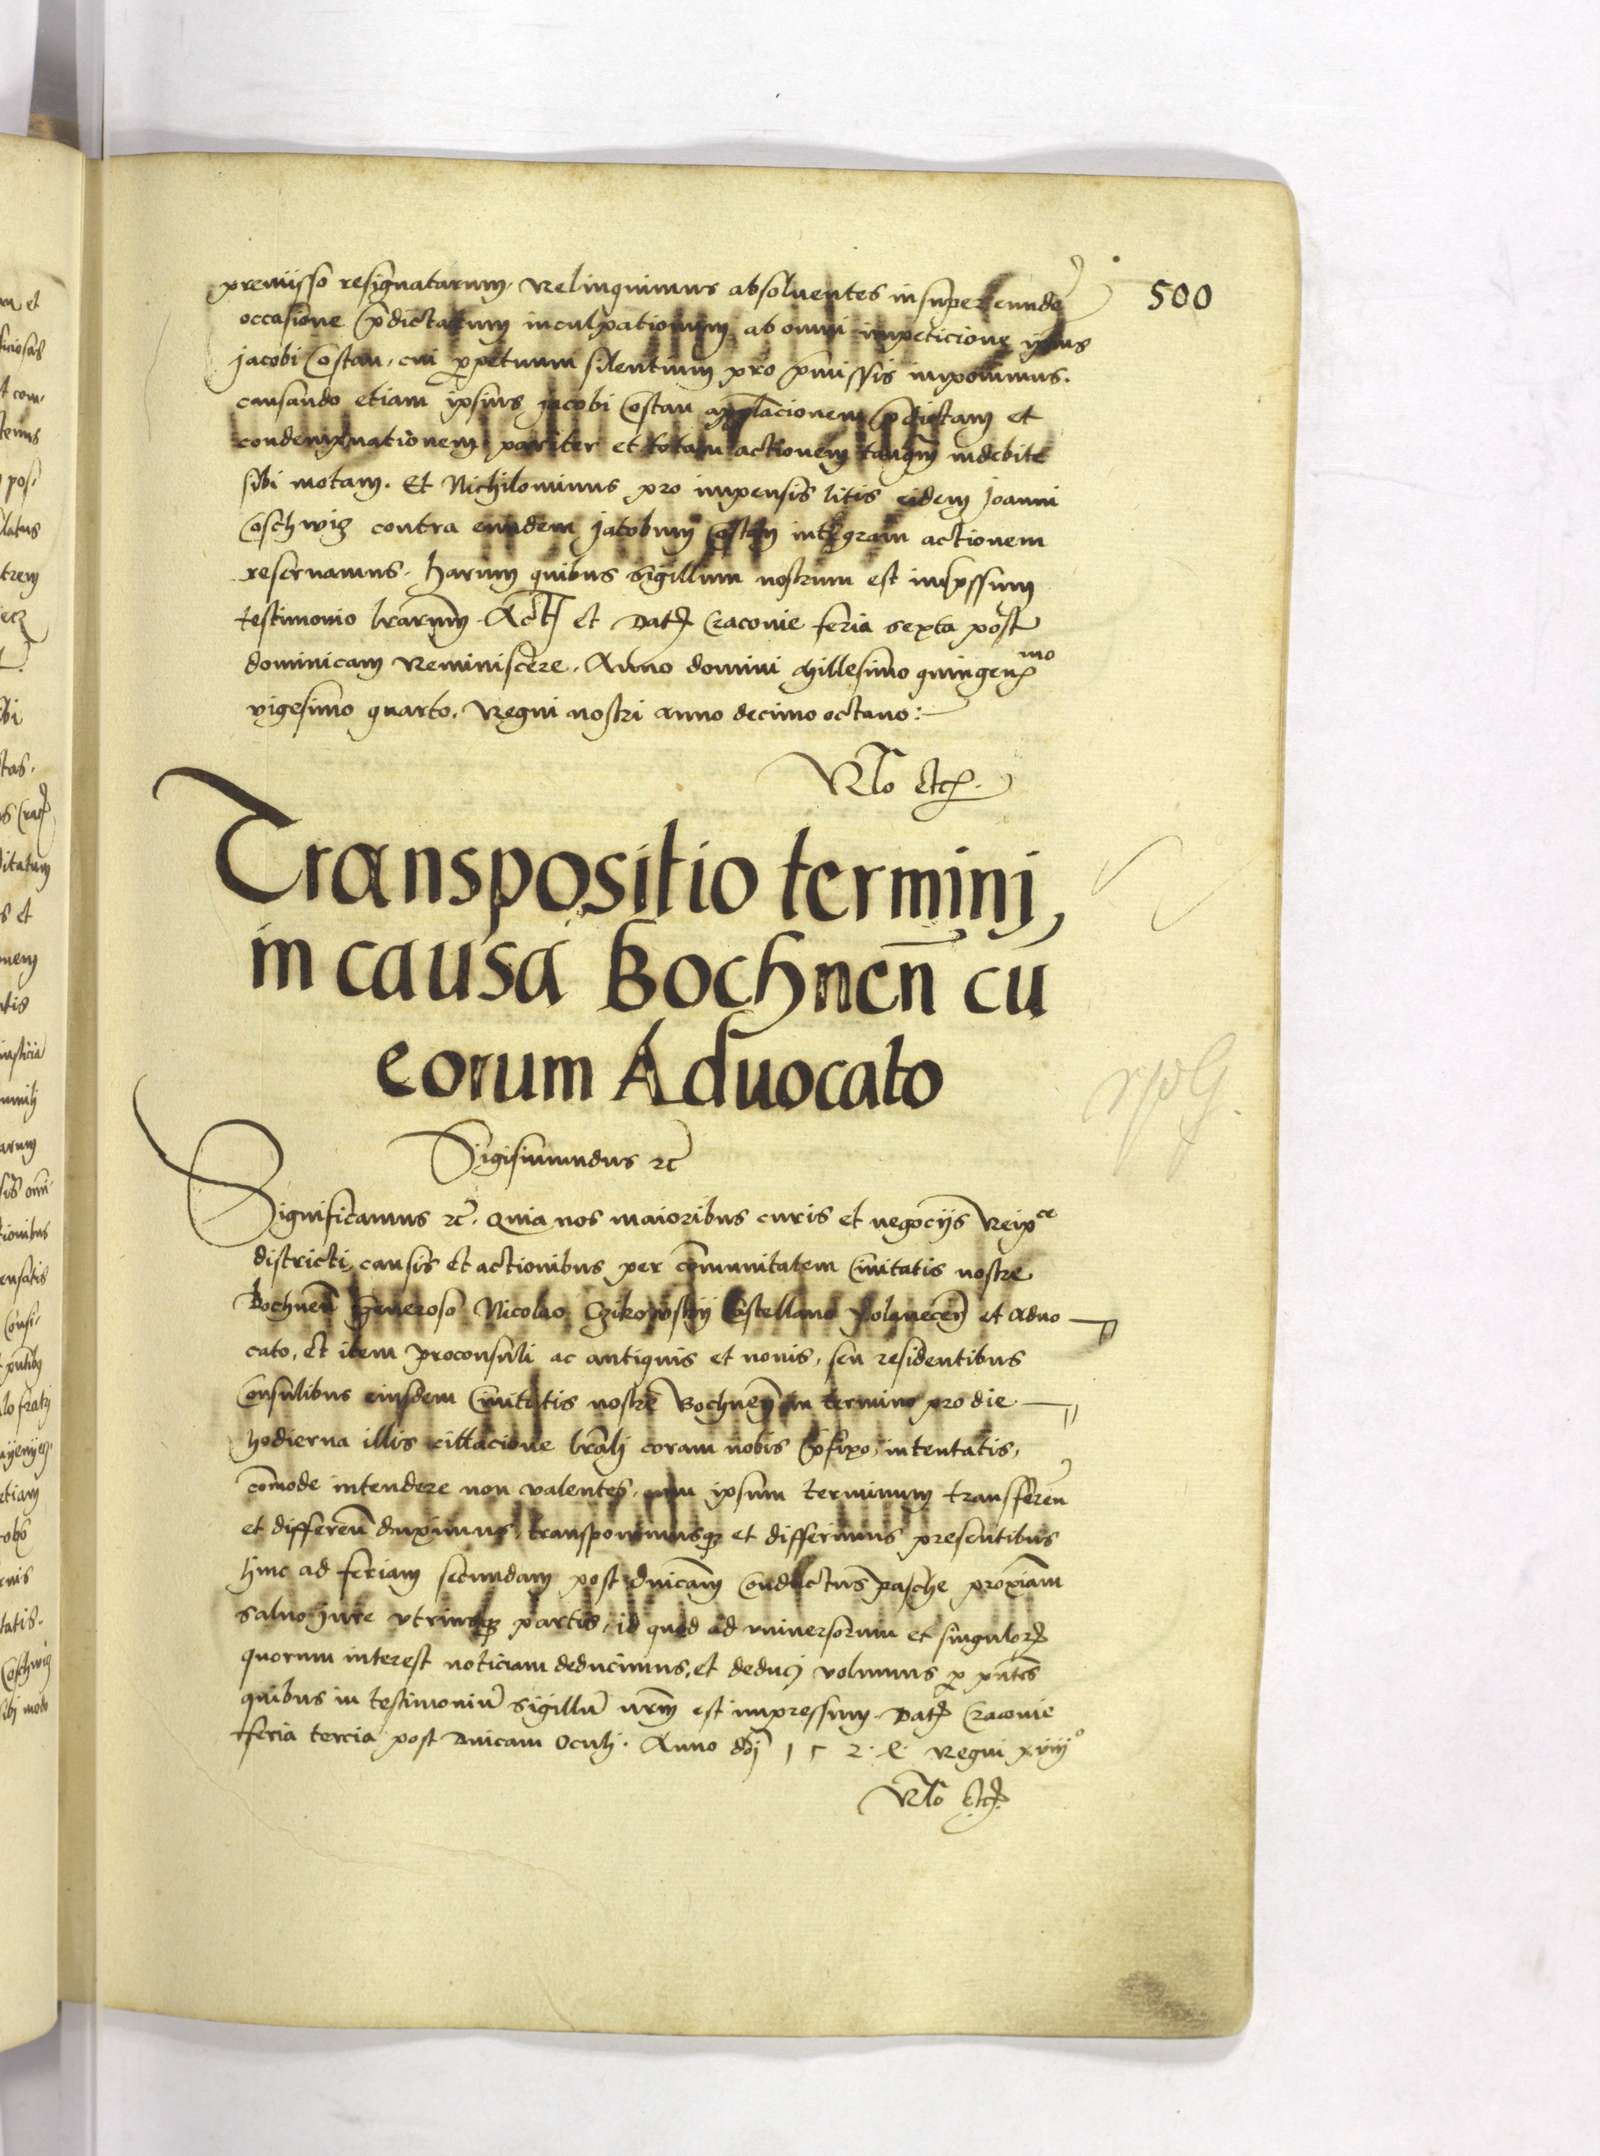 500
premisso resignatarum. Relinquimus absoluentes insuper eundē
occasione p̄dictarum inculpationum ab omni impeticione ipius
Jacobi Costan, cui ꝑpetuum silentium pro p̄missis imponimus.
cassando etiam ipsius Jacobi Costan appellacionem p̄dictam et
condempnationem pariter et totam actionem tanq̄m indebite
sibi motam. Et Nichilominus pro impensis litis eidem Joanni
Coschwig contra eundem Jacobum Costan integram actionem
reseruamus. Harum quibus Sigillum nostrum est imp̄ssum
testimonio lr̄arum. Act̄ et Dat̄ Cracouie feria sexta post
dominicam Reminiscere. Anno domini Millesimo quingen̄mo
vigesimo quarto. Regni nostri anno decimo octauo:
Rl̄o etc̄.
Transpositio termini,
in causa Bochnen̄ cū
eorum Aduocato
Sigismundus ⁊c̄
Significamus ⁊c̄. Quia nos maioribus curis et negocijs Reipce
districti causis et actionibus per com̄unitatem Ciuitatis nostre
Bochnen̄ Generoso Nicolao Castellano Polanecen̄ et aduo
cato, Et item proconsuli ac antiquis et nouis, seu residentibus
Consulibus eiusdem Ciuitatis nostre Bochnen̄ in termino pro die
hodierna illis cittacione lr̄ali coram nobis p̄fixo, intentatis,
com̄ode intendere non valentes. ipsum terminum transfferen̄
et differen̄ duximus, transponimusꝗ et differimus presentibus
hinc ad feriam secundam post dn̄icam Conductus pasche proxīam
saluo Jure vtriusꝗ partis, id quod ad vniuersorum et singulor̄
quorum interest noticiam deducimus, et deduci volumus ꝑ pn̄tes
quibus in testimoniū sigillū nr̄m est impressum. Dat̄ Cracouie
feria tercia post Dn̄icam Oculi. Anno dn̄j 1 5 2 4 Regni xviijo
Rl̄o etc̄.